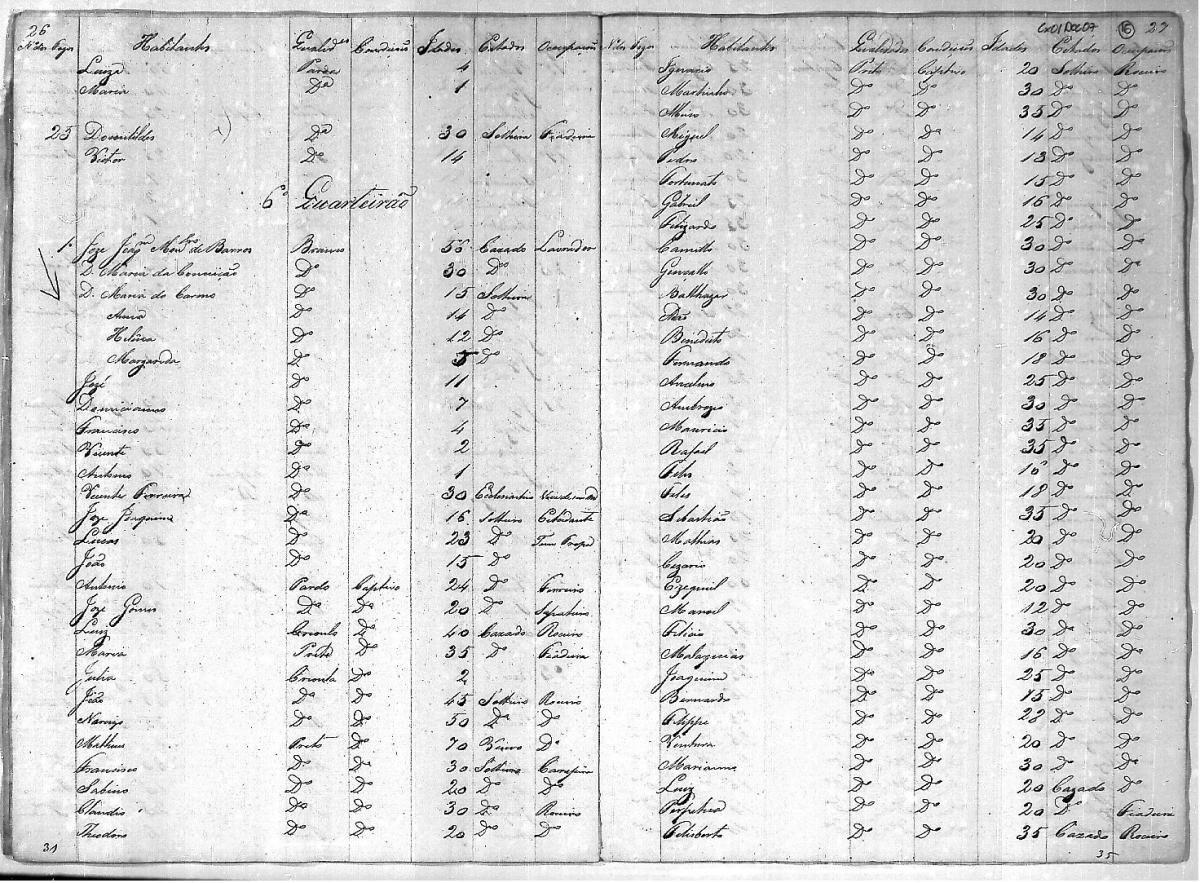 26
Nº dos Fogos Habitantes Qualid.es Condicois Idades Estados Ocupacois
Luiza Parda 4
Maria Dª 1
25 Domitildes Dª 30 Solteira Fiadeira
Victor Dº 14
6º Quarteirão
1º Joze Joaqm Montrº de Barros Branco 56 Cazado Lavrador
D. Maria da Conceição Dº 30 Dº
D. Maria do Carmo Dº 15 Solteira
Anna Dº 14 Dº
Helena Dº 12 Dº
Margarida D. 5 Dº
Jozé Dº 11
D. 7
Francisco Dº 4
Vicente Dº 2
Antonio Dº 1
Vicente Ferreira Dº 30 Ecleziastico
Joze Joaquim Dª 16 Solteiro Estudante
Lucas Dº 23 Dº
João Dº 15 Dº
Antonio Pardo Captivo 24 Dº Ferreiro
Joze Gomes Dª Dª 20 Dº Sapateiro
Luiz Crioulo Dº 40 Cazado Roceiro
Maria Preta Dº 35 Dº Fiadeira
Julia Crioula Dº 2
João Dª Dº 45 Solteiro Roceiro
Narcizo Dº Dº 50 Dº Dº
Matheus Preto Dº 70 Viuvo Dº
Francisco Dº Dª 30 Solteiro Carapina
Sabino Dº Dº 20 Dº Dº
Claudio Dº Dº 30 Dº Roceiro
Theodoro Dº Dº 20 Dº Dº
31
Cx01Doc07 16 27
Nº dos Fogos Habitantes Qualidades Condicois Idades Estados Ocupacois
Ignacio Preto Captivo 20 Solteiro Roceiro
Martinho Dº Dº 30 Dº Dº
Dº Dº 35 Dº Dº
Miguel Dº Dª 14 Dº Dº
Pedro Dº Dº 13 Dº Dº
Fortunato Dº Dº 15 Dº Dº
Gabriel Dº Dº 16 Dº Dº
Felizardo Dº Dº 25 Dº Dº
Camillo Dº Dº 30 Dº Dº
Gonsallo Dº Dº 30 Dº Dª
Balthazar Dº Dº 30 Dº Dº
Dº Dº 14 Dº Dº
Benedicto Dº Dº 16 Dº Dº
Fernando Dº Dº 18 Dº Dº
Anselmo Dº Dº 25 Dº Dº
Ambrozio Dº Dº 30 Dº Dº
Mauricio Dº Dº 35 Dº Dº
Rafael Dº Dº 35 Dº Dº
Felis Dº Dº 16 Dº Dº
Felis Dº Dº 18 Dº Dº
Sebastião Dº Dº 35 Dº Dº
Mathias Dº Dº 20 Dº Dº
Cezario Dº Dº 20 Dº Dº
Ezequiel Dº Dº 20 Dº Dº
Manoel Dº Dº 12 Dº Dº
Felicio Dº Dº 30 Dº Dº
Malaquias Dº Dº 16 Dº Dº
Joaquim Dº Dº 25 Dº Dº
Bernardo Dº Dº 15 Dº Dº
Felippe Dº Dº 28 Dº Dº
Ventura Dº Dº 20 Dº Dº
Marianno Dº Dº 30 Dº Dº
Luiz Dº Dº 20 Cazado Dº
Perpetua Dº Dº 20 Dº Fiadeira
Felisberto Dº Dº 35 Cazado Roceiro
35